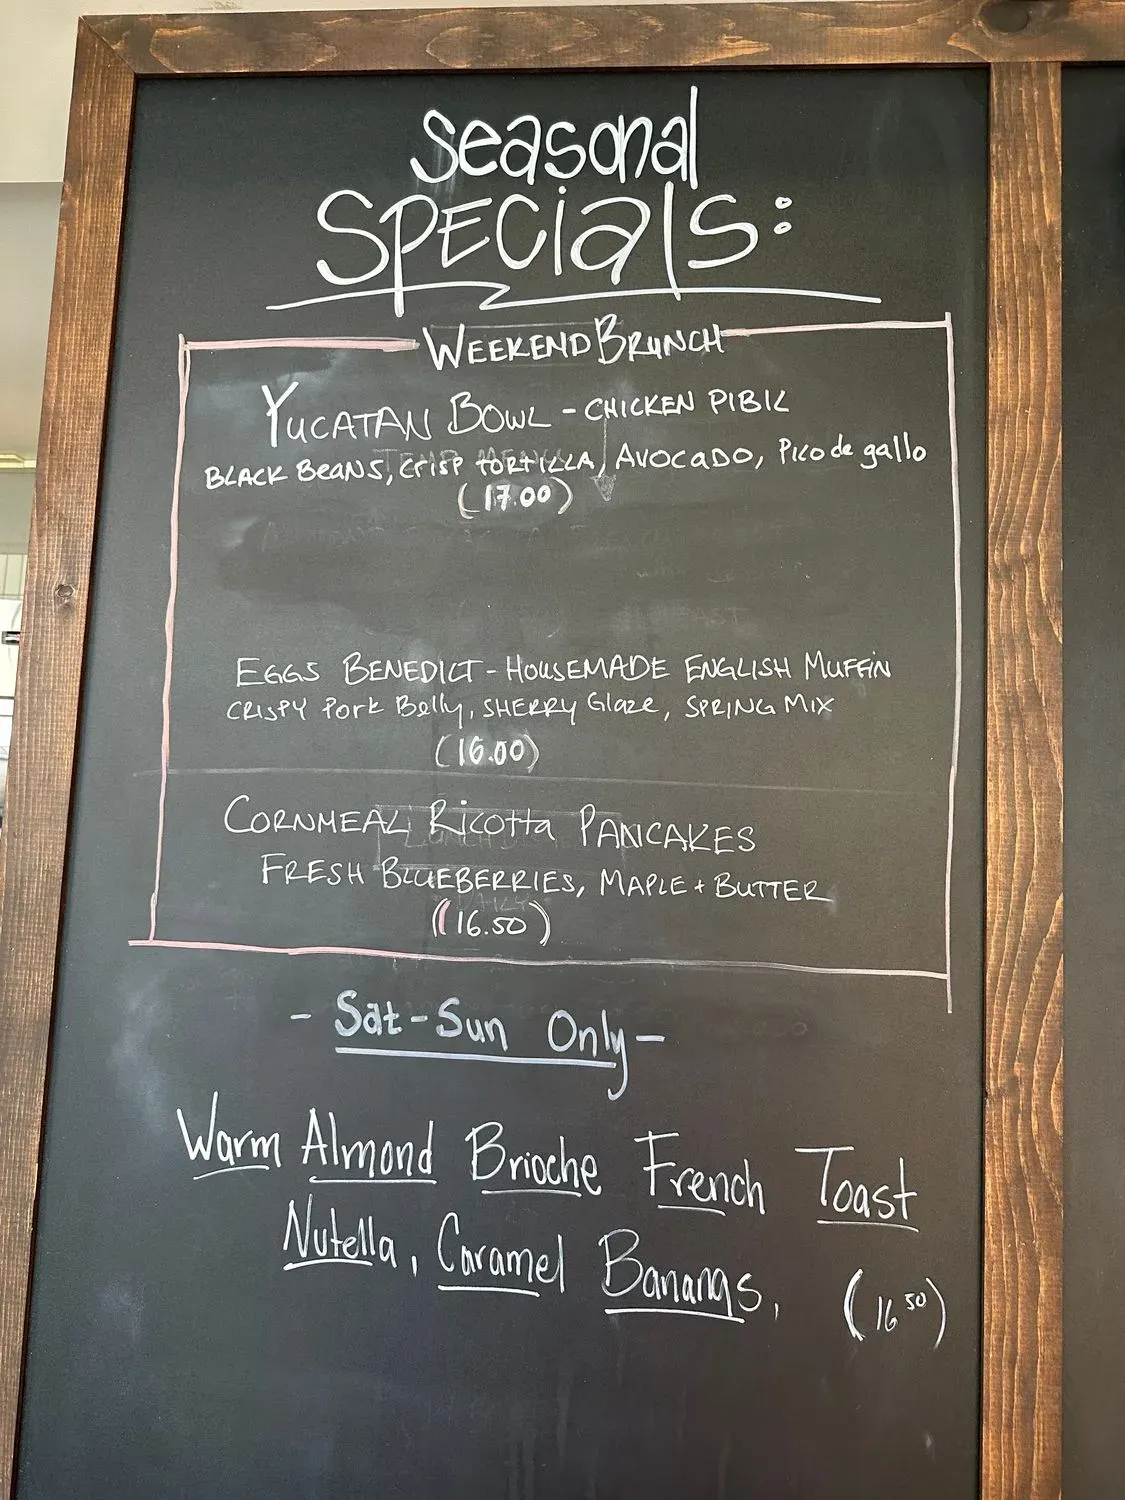 Seasonal
SPECials:
WEEKEND BRUNCH
YUCATAN BOWL - CHICKEN PIBIL
BLACK BEANS, CRISP TORTILLA, AVOCADO, Pico de gallo
(17.00)
EGGS BENEDICT - HOUSEMADE ENGLISH MUFFIN
CRISPY Pork Belly, SHERRY Glaze, SPRING MIX
(16.00)
CORNMEAL Ricotta PANCAKES
FRESH BLUEBERRIES, MAPLE + BUTTER
(16.50)
- Sat-Sun Only -
Warm Almond Brioche French Toast
Nutella, Caramel Bananas, (16 50)